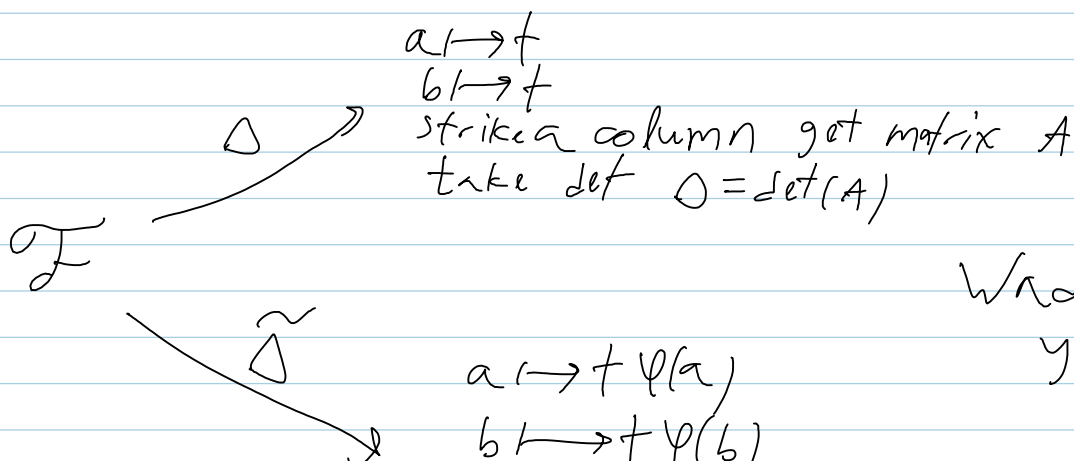 a ↦ t
b ↦ t
Δ
strike a column get matrix A
take det Δ = det(A)
ℱ
y
Δ̃
a ↦ t φ(a)
b ↦ t φ(b)